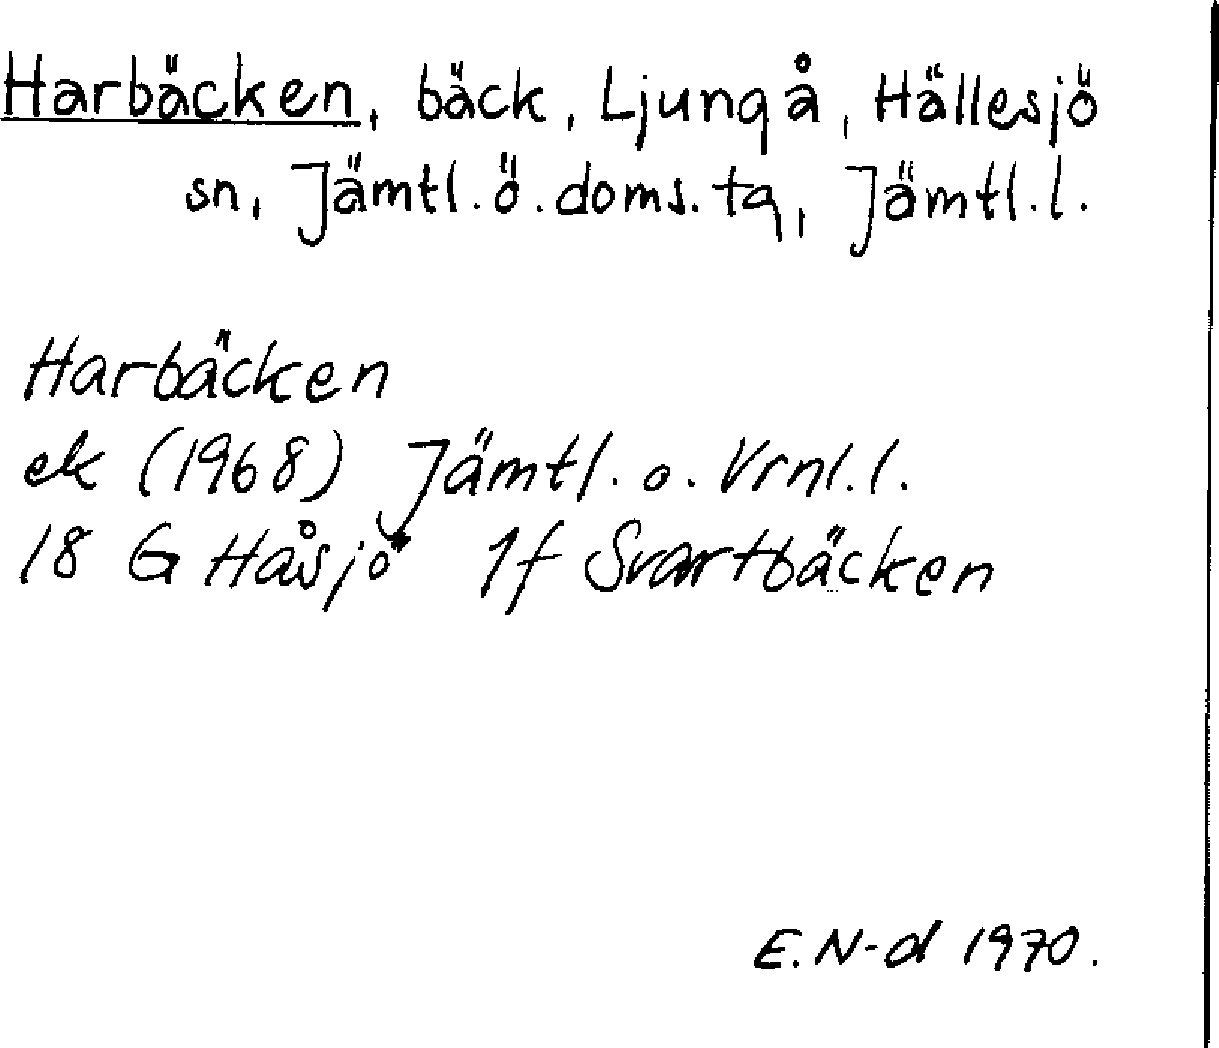 Harbäcken, bäck, Ljungå, Hällesjö
sn, Jämtl. ö. doms. tg, Jämtl. l.
Harbäcken
ek (1968) Jämtl. o. Vrnl. l.
18 G Håsjö 1f Svartbäcken
E. N-d 1970.